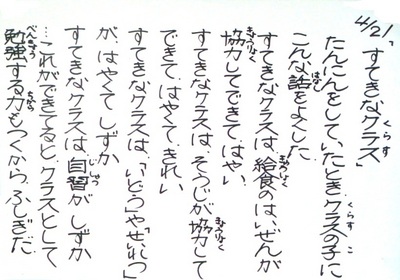 4/21「すてきなクラス」
たんにんをしていたとき、クラスの子に
こんな話をよくした。
すてきなクラスは、給食のはいぜんが
協力してできて、はやい
すてきなクラスは、そうじが協力して
できて、はやくて、きれい
すてきなクラスは、「いどう」や「せいれつ」
が、はやくて、しずか
すてきなクラスは、自習がしずか
…これができてると、クラスとして
勉強する力もつくから、ふしぎだ。